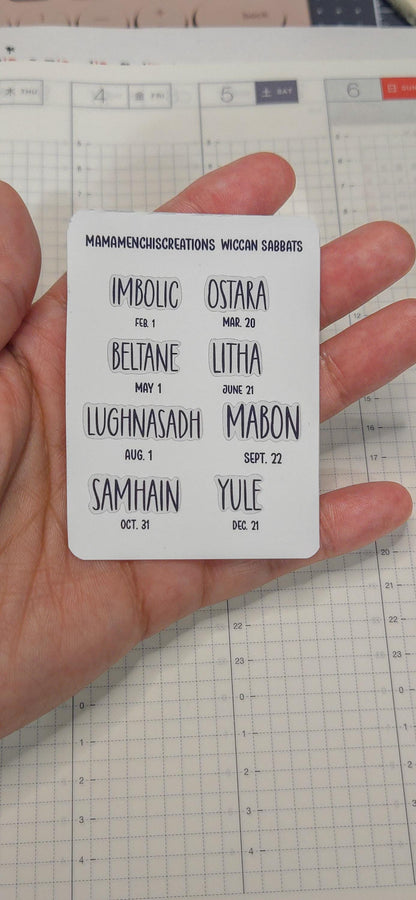 木 THU 4 金 FRI 5 土 SAT 6 日 SUN
MAMAMENCHISCREATIONS WICCAN SABBATS
IMBOLIC OSTARA
FEB. 1 MAR. 20
BELTANE LITHA
MAY 1 JUNE 21
LUGHNASADH MABON
AUG. 1 SEPT. 22
SAMHAIN YULE
OCT. 31 DEC. 21
15
16
17
20
21
22 22
23 23
0 0 0
1 1 1
2 2 2
3 3
4 4